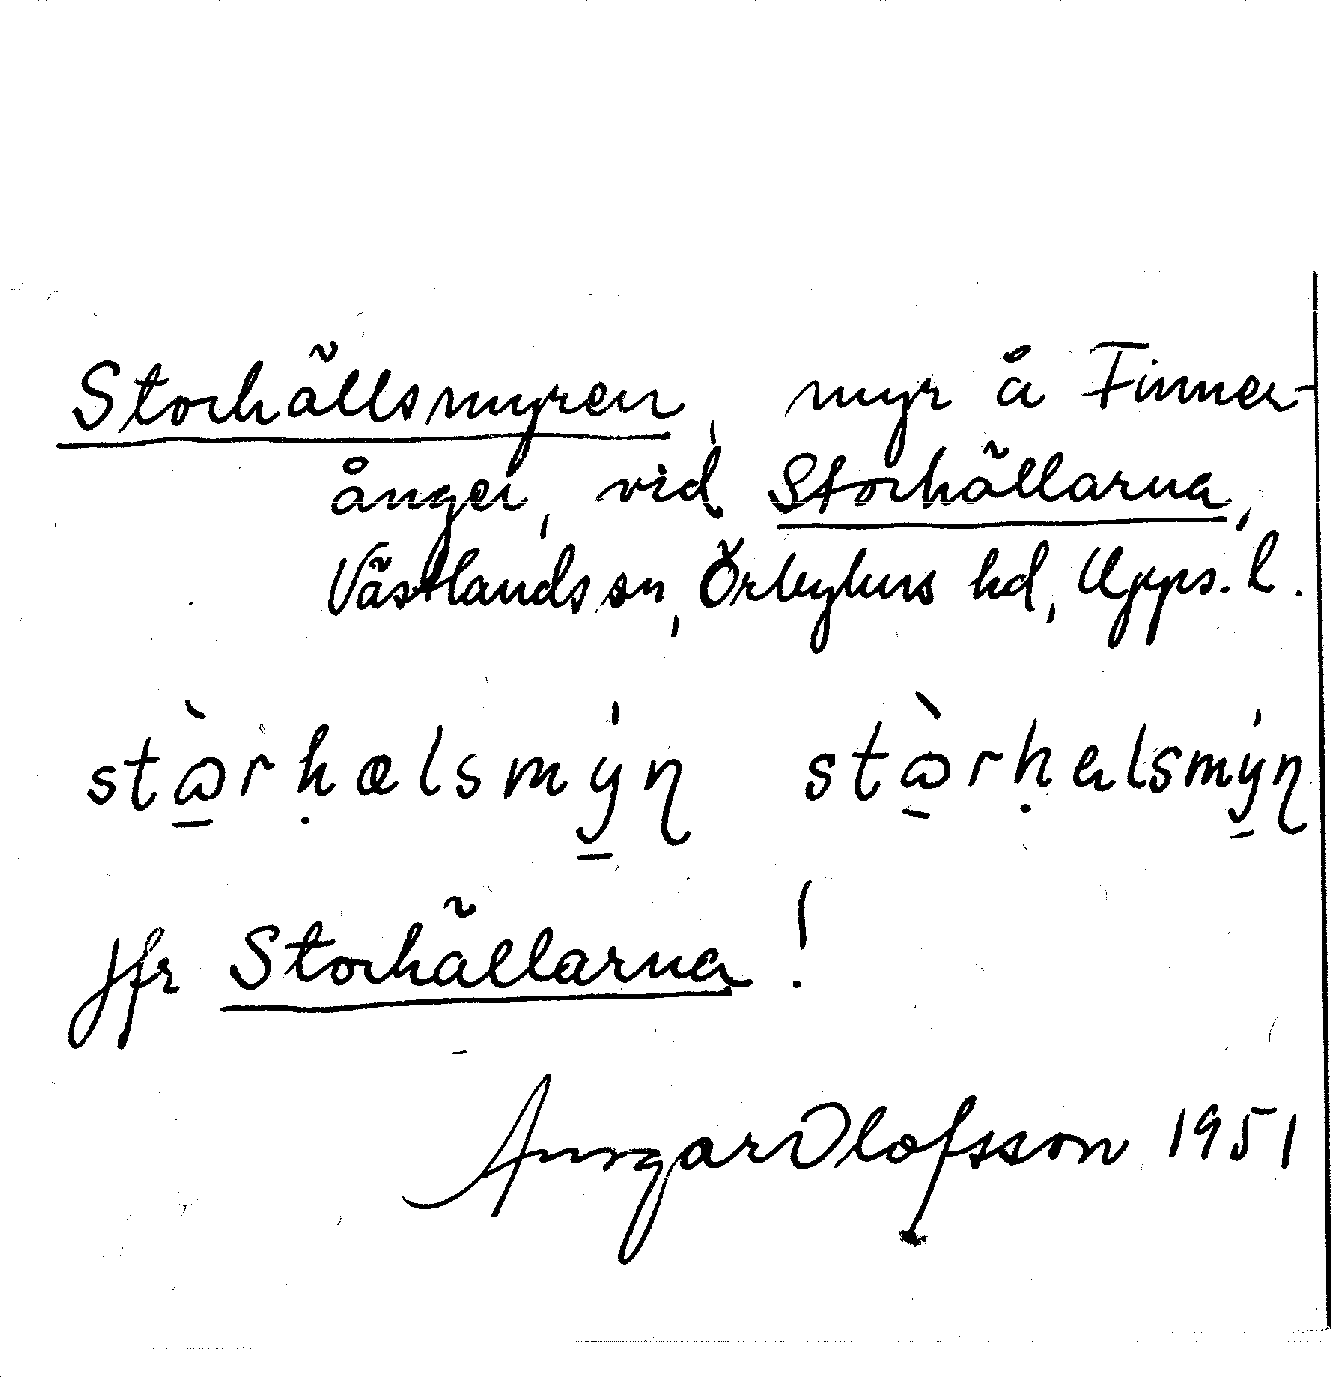 Storhällsmyren, myr å Finner-
ånger, vid Storhällarna,
Västlands sn, Örbyhus hd, Upps. l.
jfr Storhällarna!
Ansgar Olofsson 1951